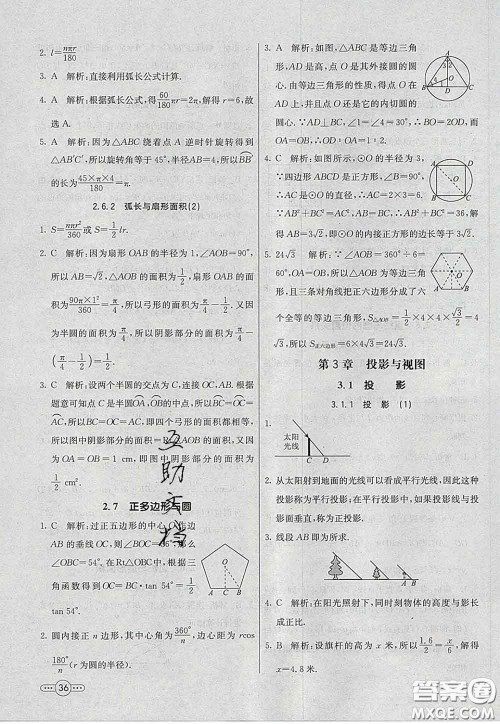 2. l=nπr/180
3. A 解析:直接利用弧长公式计算.
4. A 解析:根据弧长公式,得60/180 πr=2π,解得 r=6,故
选 A.
5. A 解析:因为△ABC 绕着点 A 逆时针旋转得到
△AB′C′,所以旋转角等于 45°,所以BB′
的长为45×π×4/180=π.
2.6.2 弧长与扇形面积(2)
1. S=nπr²/360 或 S=1/2 lr
2. C 解析:因为扇形 OAB 的半径为 1,∠AOB=90°,
所以 AB=√2,△AOB 的面积为1/2,扇形 OAB 的面积
为90π×1²/360=π/4,所以弓形的面积为π/4-1/2.又因
为半圆的面积为π/4,所以阴影部分的面积为π/4-
(π/4-1/2)=1/2.
3. C 解析:设两个半圆的交点为 C,连接 OC,AB.根据
题意可知点 C 是半圆的中点,所以BC=OC=AC,所以
BC=OC=AC,所以四个弓形的面积都相等,
所以图中阴影部分的面积等于Rt△AOB的面积.又因
为 OA=OB=1 cm,即图中阴影部分的面积为
1/2 cm².
2.7 正多边形与圆
1. C 解析:过正五边形的中心 O 作边
AB 的垂线 OC,则∠BOC=36°,那么
∠OBC=54°.在 Rt△OBC 中,根据三
角函数得到 OC=BC·tan 54°=
tan 54°.
2. 圆内接正 n 边形,其中心角为360°/n,边心距为 rcos
180°/n(r 为圆的半径).
36
3. A 解析:如图,△ABC 是等边三角
形,AD 是高,点 O 是其外接圆的圆
心,由等边三角形的性质,得点 O 在
AD 上,并且点 O 还是它的内切圆的
圆心.∵AD⊥BC,∠1=∠4=30°,∴BO=2OD,而
OA=OB,∴OA:OD=2:1.
4. C 解析:如图,⊙O 的半径为 3.
∵四边形 ABCD 是正方形,∠B=90°,
∴AC 是⊙O 的直径,∴AC=2×3=6.
∵AB²+BC²=AC²,AB=BC,∴
AB²+BC²=36,解得 AB=3√2,即⊙O 的内接正方形的
边长为 3√2.
5. 24√3 解析:∵∠AOB=360°÷6=
60°,∴△AOB 是正三角形,AB=4,
且三条对角线把正六边形分成了六
个全等的三角形,S△AOB=1/2×4×4×√3/2=4√3,
∴S正六边形=6×4√3=24√3.
第 3 章 投影与视图
3.1 投 影
3.1.1 投 影(1)
1.
太阳
光线
C D
2. 从太阳射到地面的光线可以看成平行光线,因此这种
投影称为平行投影,在平行投影中,如果投影线与投
影面垂直,称为正投影.
3. 线段 AB 即为所求.
A B
4. C 解析:在阳光照射下,同时刻物体的高度与影长
成正比.
5. C 解析:设旗杆的高为 x 米,所以1.6/2=x/6,解得
x=4.8 米.
互助文档
答案圈
MXQE.COM